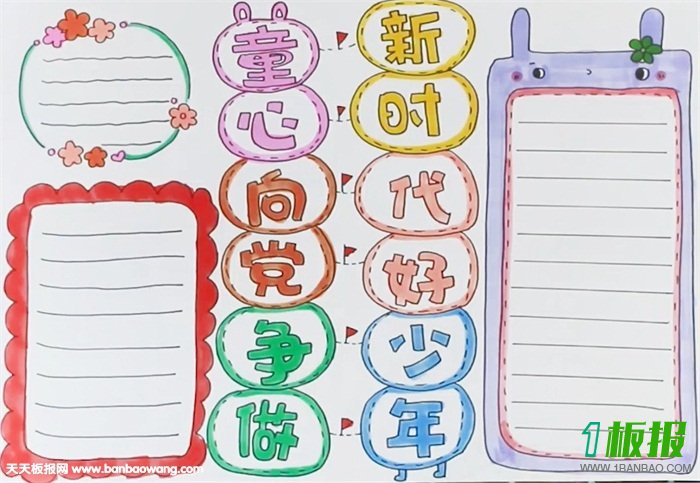 童心向党争做
新时代好少年
天天板报网 www.banbaowang.com
1板报
WWW.1BANBAO.COM